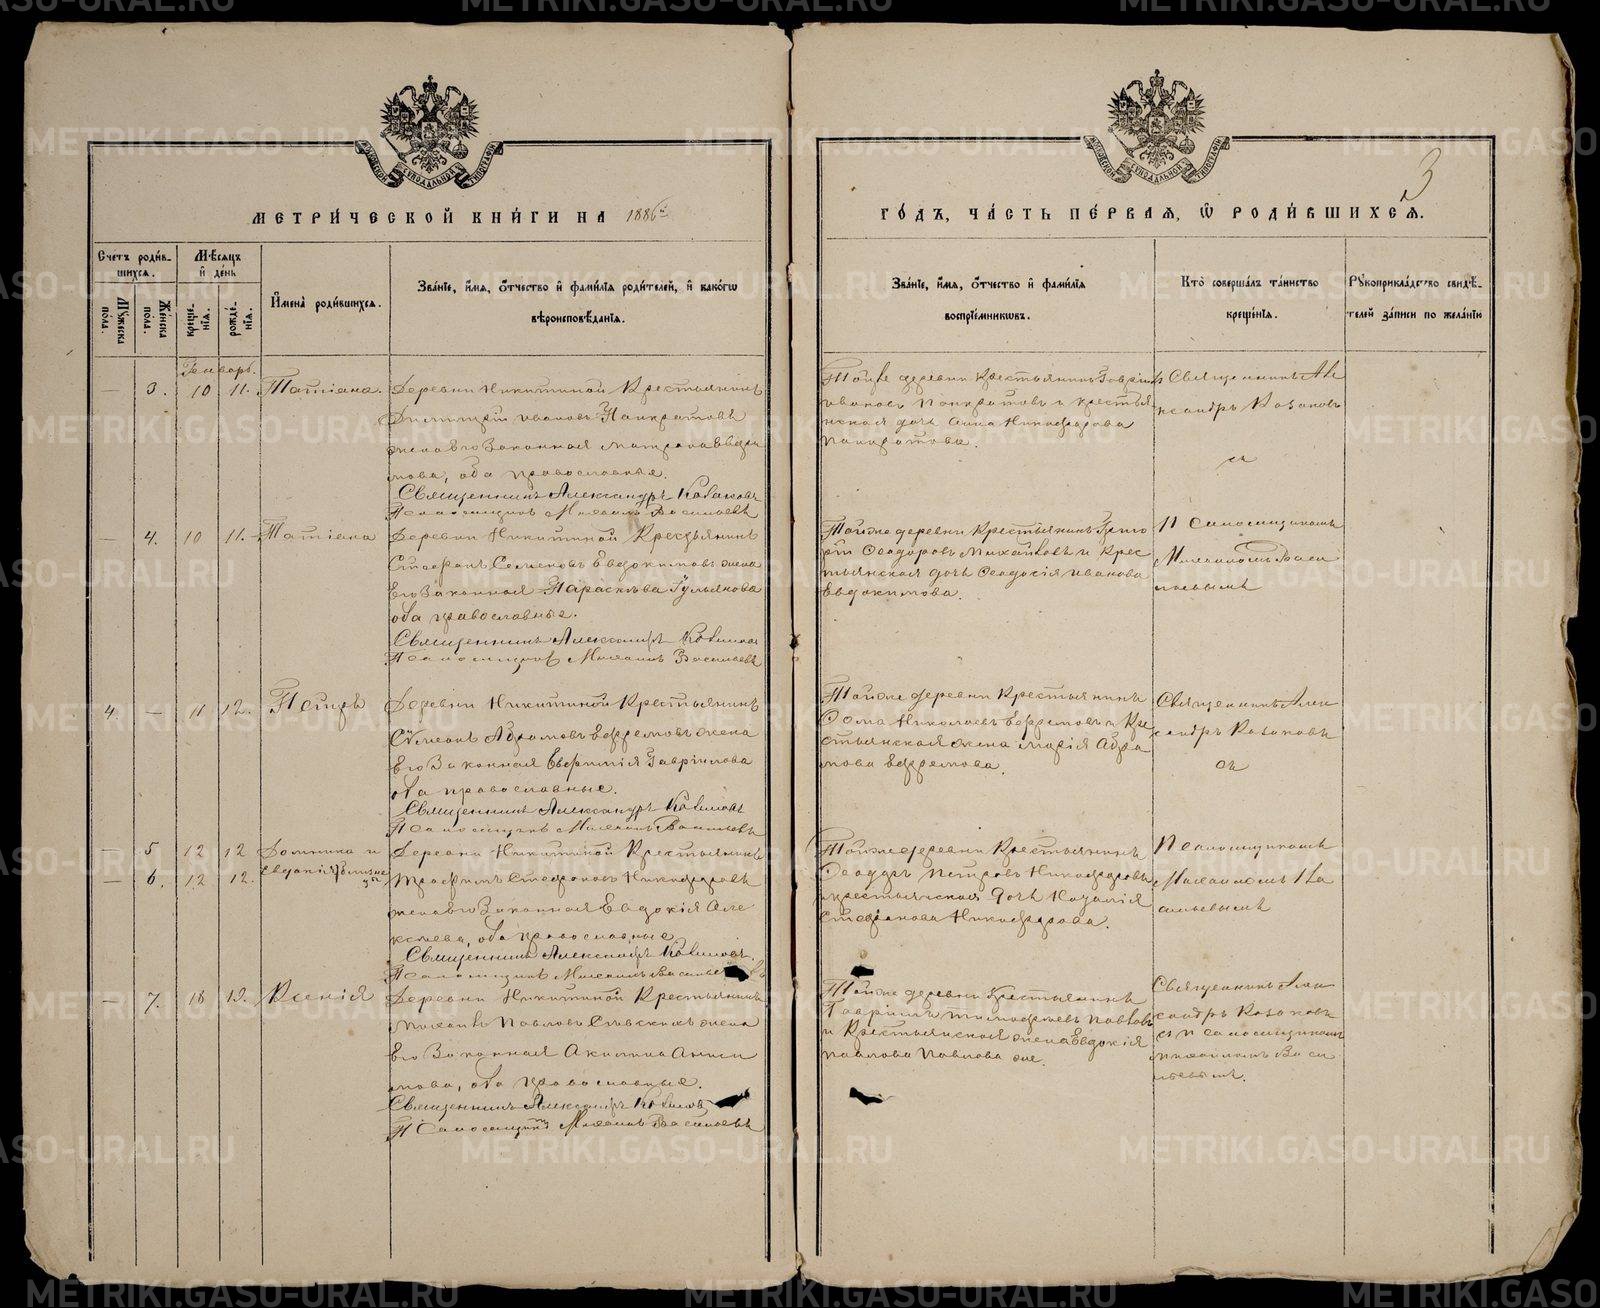 МЕТРИ́ЧЕСКОЙ КНИ́ГИ НА 1886й
ГО́ДЪ, ЧА́СТЬ ПЕ́РВАЯ, Ѡ РОДИ́ВШИХСЯ.
3
Счетъ роди́в-
шихся.
Мѣсяцъ
и́ де́нь
Мꙋжеска
пола.
Же́нска
пола.
креще́-
нїя.
рожде́-
нїя.
И҆мена̀ роди́вшихся.
Зва́нїе, и҆́мя, ѻ҆́тчество и҆ фами́лїя роди́телей, и҆ како́гѡ
вѣроисповѣ́данїя.
Зва́нїе, и҆́мя, ѻ҆́тчество и҆ фами́лїя
воспрїе́мникѡвъ.
Кто̀ соверша́лъ та́инство
креще́нїя.
Рꙋкоприкла́дство свидѣ́-
телей за́писи по жела́нїю
Генварь.
— 3. 10 11. Татіана.
Деревни Никитиной Крестьянинъ
Ивановъ Панкратовъ
жена его Законная Матрона
мова, оба православные.
Священникъ Александръ Казаковъ
Псаломщикъ Михаилъ Васильевъ
Тойже деревни Крестьянинъ Гавріилъ
Ивановъ Панкратовъ и крестья
нская дочь Анна Никифорова
Панкратова.
Священникъ Але
ксандръ Казаковъ
съ
— 4. 10 11. Татіана
Деревни Никитиной Крестьянинъ
Стефанъ Семеновъ Евдокимовъ жена
Его Законная Параскева Гульянова
оба православные.
Священникъ Александръ Казаковъ
Псаломщикъ Михаилъ Васильевъ
Тойже деревни Крестьянинъ Григо
рій Феодоровъ Михайловъ и Крес
тьянская дочь Феодосія Иванова
Евдокимова.
Псаломщикомъ
Михаиломъ Васи
льевымъ
4. — 11 12. Петръ
Деревни Никитиной Крестьянинъ
Симеонъ Абрамовъ Ефремовъ жена
Его Законная Евфимія Гавріилова
оба православные.
Священникъ Александръ Казаковъ
Псаломщикъ Михаилъ Васильевъ
Тойже деревни Крестьянинъ
Фома Николаевъ Ефремовъ и Кре
стьянская жена Марія Абра
мова Ефремова.
Священникъ Алек
сандръ Казаковъ
съ
— 5 12 12 Домника и
— 6. 12 12. Евдокія близне
цы
Деревни Никитиной Крестьянинъ
Трофимъ Стефановъ Никифоровъ
жена его Законная Евдокія Але
ксеева, оба православные
Священникъ Александръ Казаковъ.
Псаломщикъ Михаилъ Васильевъ
Тойже деревни Крестьянинъ
Феодоръ Петровъ Никифоровъ
и крестьянская Дочь Наталія
Стефанова Никифорова.
Псаломщикомъ
Михаиломъ Ва
сильевымъ
— 7. 18 19. Ксенія
Деревни Никитиной Крестьянинъ
Михаилъ Павловъ жена
Его Законная Акилина Аниси
мова, оба православные.
Священникъ Александръ Казаковъ
Псаломщикъ Михаилъ Васильевъ
Тойже деревни Крестьянинъ
Гавріилъ Тимофеевъ Павловъ
и Крестьянская жена Евдокія
Павлова Павлова же.
Священникъ Алек
сандръ Казаковъ
съ Псаломщикомъ
Михаиломъ Васи
льевымъ.